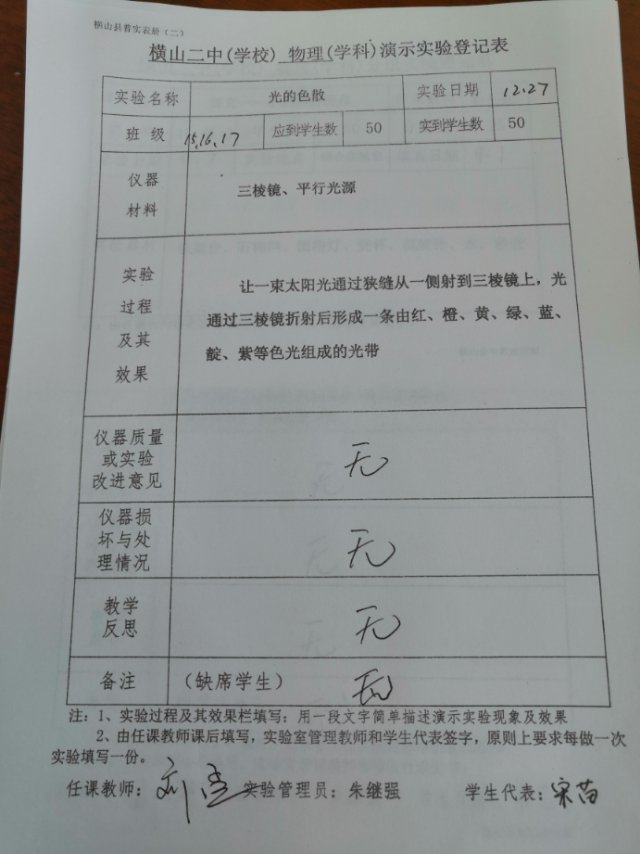 横山县普实表册（二）
横山二中(学校) 物理(学科)演示实验登记表
实验名称 光的色散 实验日期 12.27
班 级 15.16.17 应到学生数 50 实到学生数 50
仪器
材料
三棱镜、平行光源
实验
过程
及其
效果
让一束太阳光通过狭缝从一侧射到三棱镜上，光
通过三棱镜折射后形成一条由红、橙、黄、绿、蓝、
靛、紫等色光组成的光带
仪器质量
或实验
改进意见
无
仪器损
坏与处
理情况
无
教学
反思
无
备注 （缺席学生） 无
注：1、实验过程及其效果栏填写：用一段文字简单描述演示实验现象及效果
2、由任课教师课后填写，实验室管理教师和学生代表签字，原则上要求每做一次
实验填写一份。
任课教师： 刘 实验管理员：朱继强 学生代表：宋苗